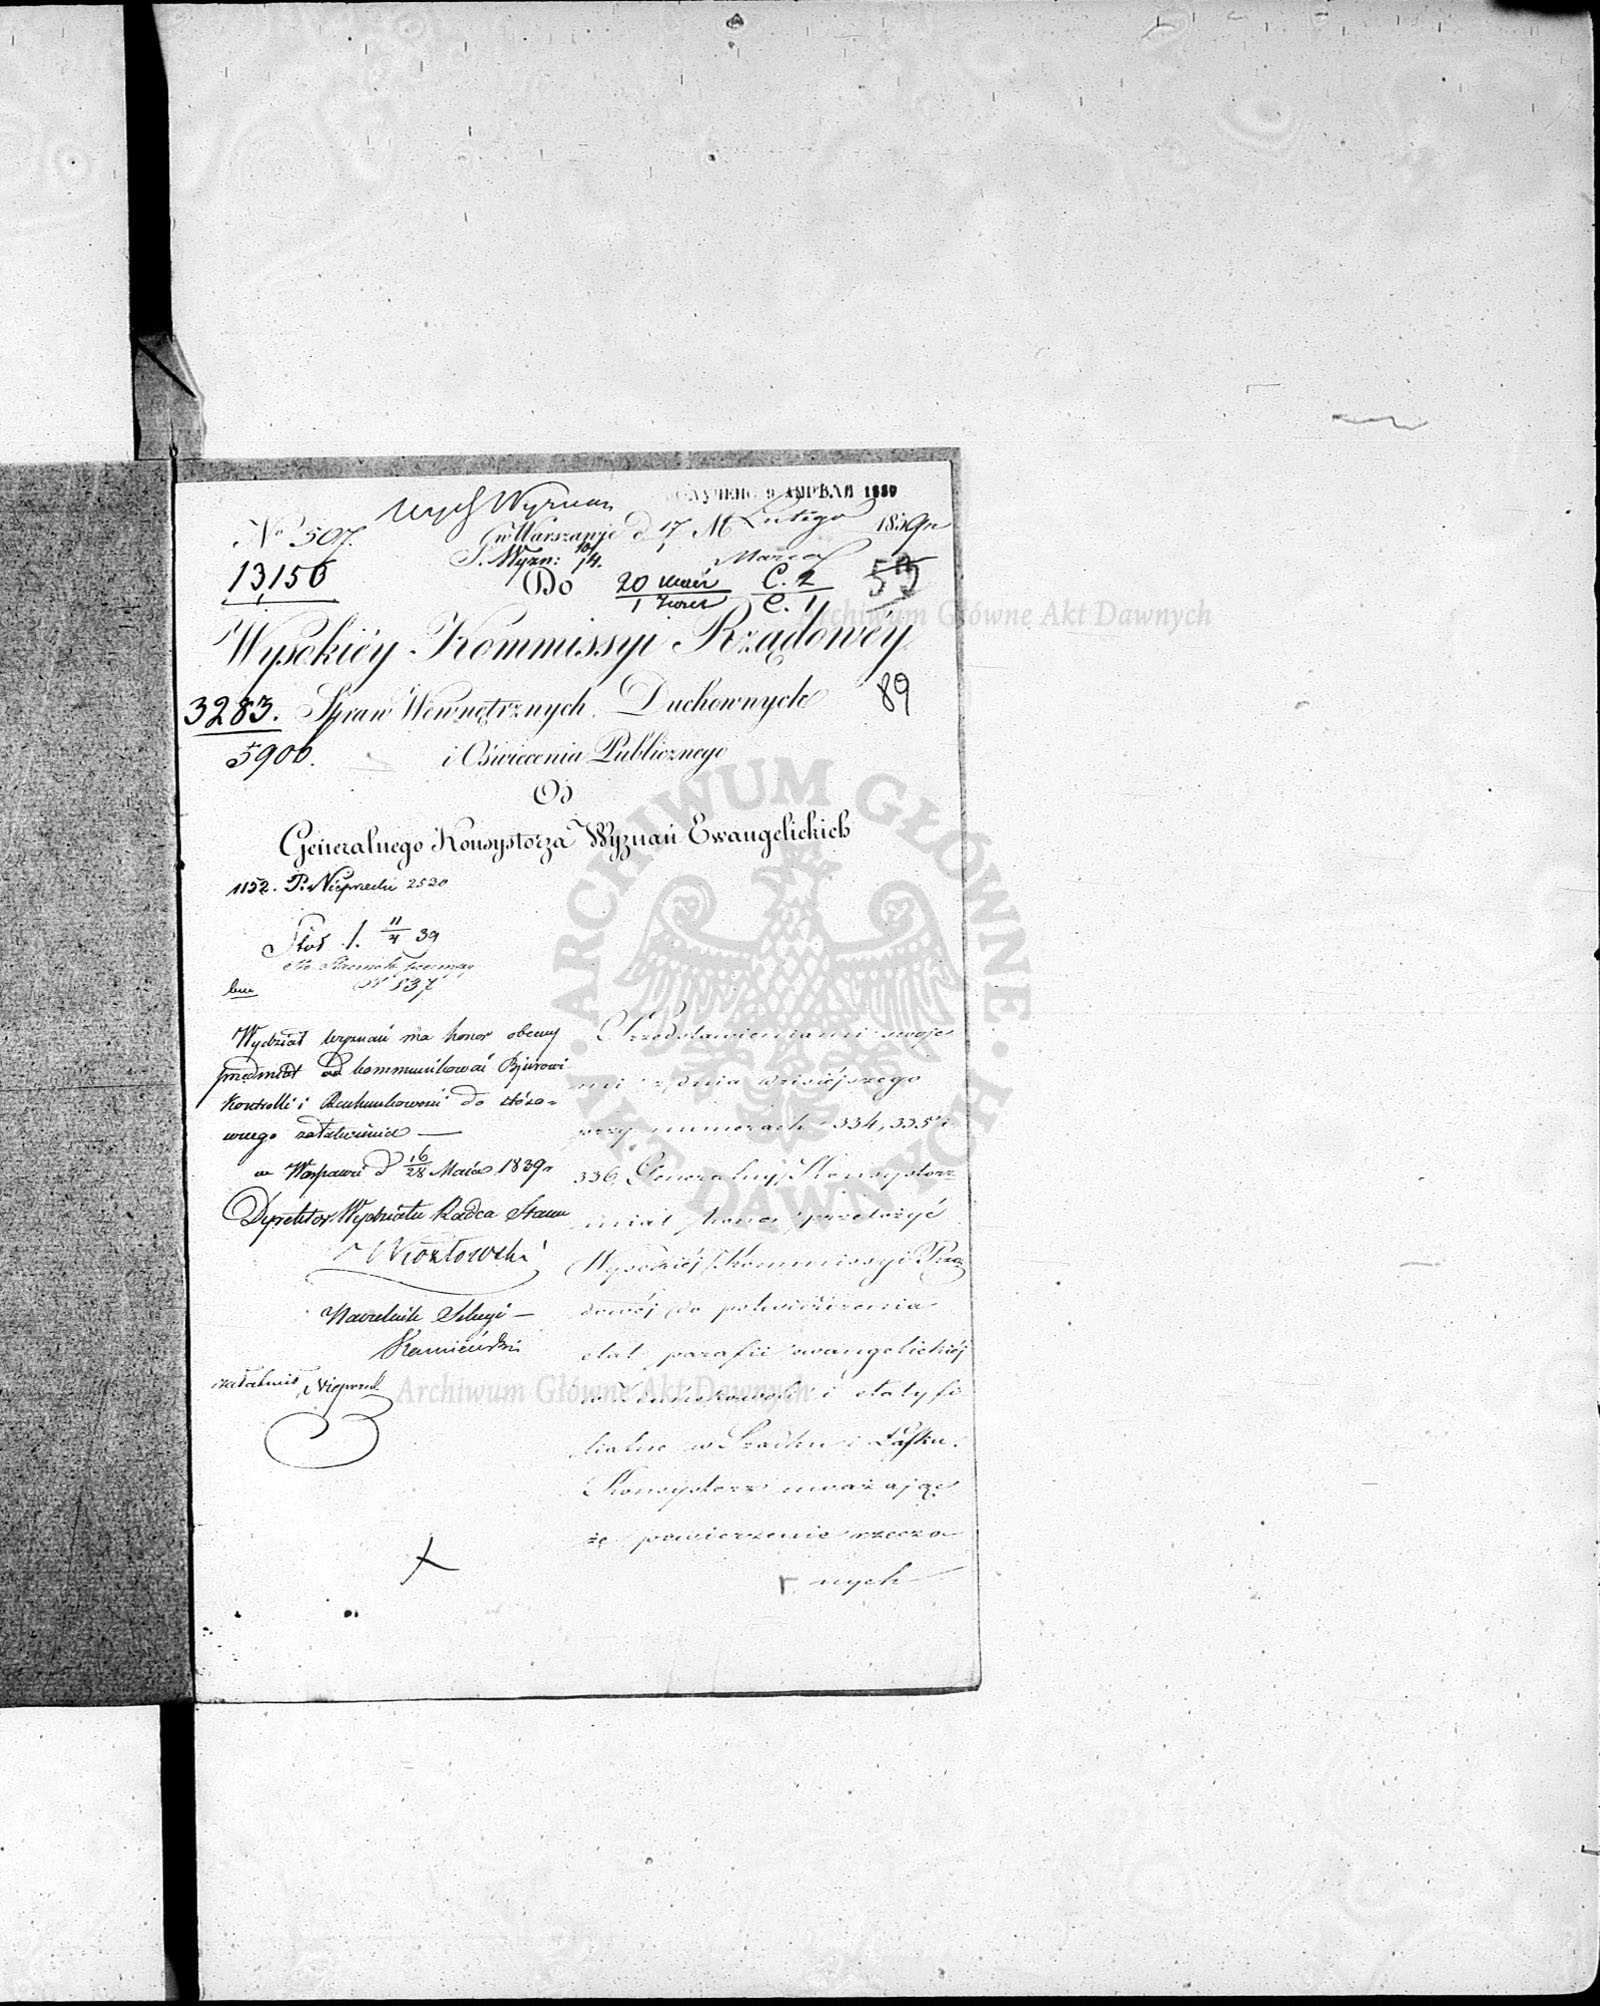 Wyd Wyznań
ПОЛУЧЕНО 9 АПРѢЛЯ 1839
No 507.
w Warszawie d 17 M Lutego 1839 r
1 Marca
13,156
S. Wyzn: 10/4.
Do
20
1
C. 2
C. 1
53
Wysokiéy Kommissyi Rządowéy
3283. Spraw Wewnętrznych Duchownych
89
5906.
i Oświecenia Publicznego
Od
Generalnego Konsystorza Wyznań Ewangelickich
1152. P. Nieprzecki 2520
11/4 39
No 537
Wydział wyznań ma honor obecny
przedmiot kommunikować Bjurowi
Kontrolli i Rachunkowości do stóso=
wnego załatwienia —
w Warszawie d 16/28 Maia 1839 r
Dyrektor Wydziału Radca Stanu
Naczelnik Sekcyi —
Kamieński
załatwił
Przedstawieniami swoje
mi z dnia dzisiéjszego
przy numerach 334, 335 i
336, Generalny Konsystorz
miał honor przełożyć
Wysokiéj Kommissyi Rzą
dowéj do potwierdzenia
etat parafii ewangelickiéj
w Zduńskowoli i etaty fi
lialne w Szadku i Łasku.
Konsystorz uważając
że powierzenie rzeczo
nych
Archiwum Główne Akt Dawnych
ARCHIWUM GŁÓWNE · AKT DAWNYCH ·
Archiwum Główne Akt Dawnych